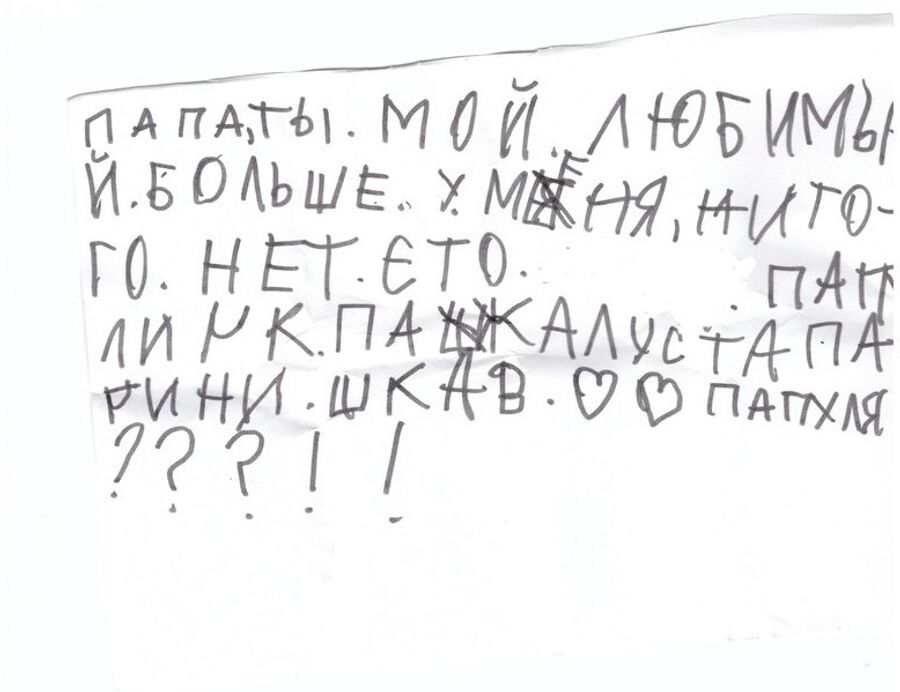 ПАПА,ТЫ. МОЙ. ЛЮБИМЫ
Й. БОЛЬШЕ. У МЕНЯ, НИГО-
ГО. НЕТ. ЄТО. . ПАП
ЛИРК. ПАЖАЛУСТА ПА
РИНИ. ШКАВ. ♡♡ ПАПХЛЯ
???!!